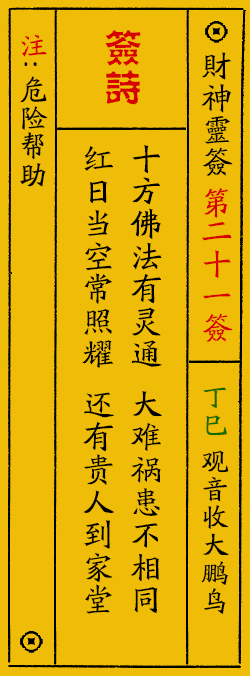 財神靈簽 第二十一簽
丁巳 观音收大鹏鸟
簽詩
十方佛法有灵通 大难祸患不相同
红日当空常照耀 还有贵人到家堂
注:危险帮助